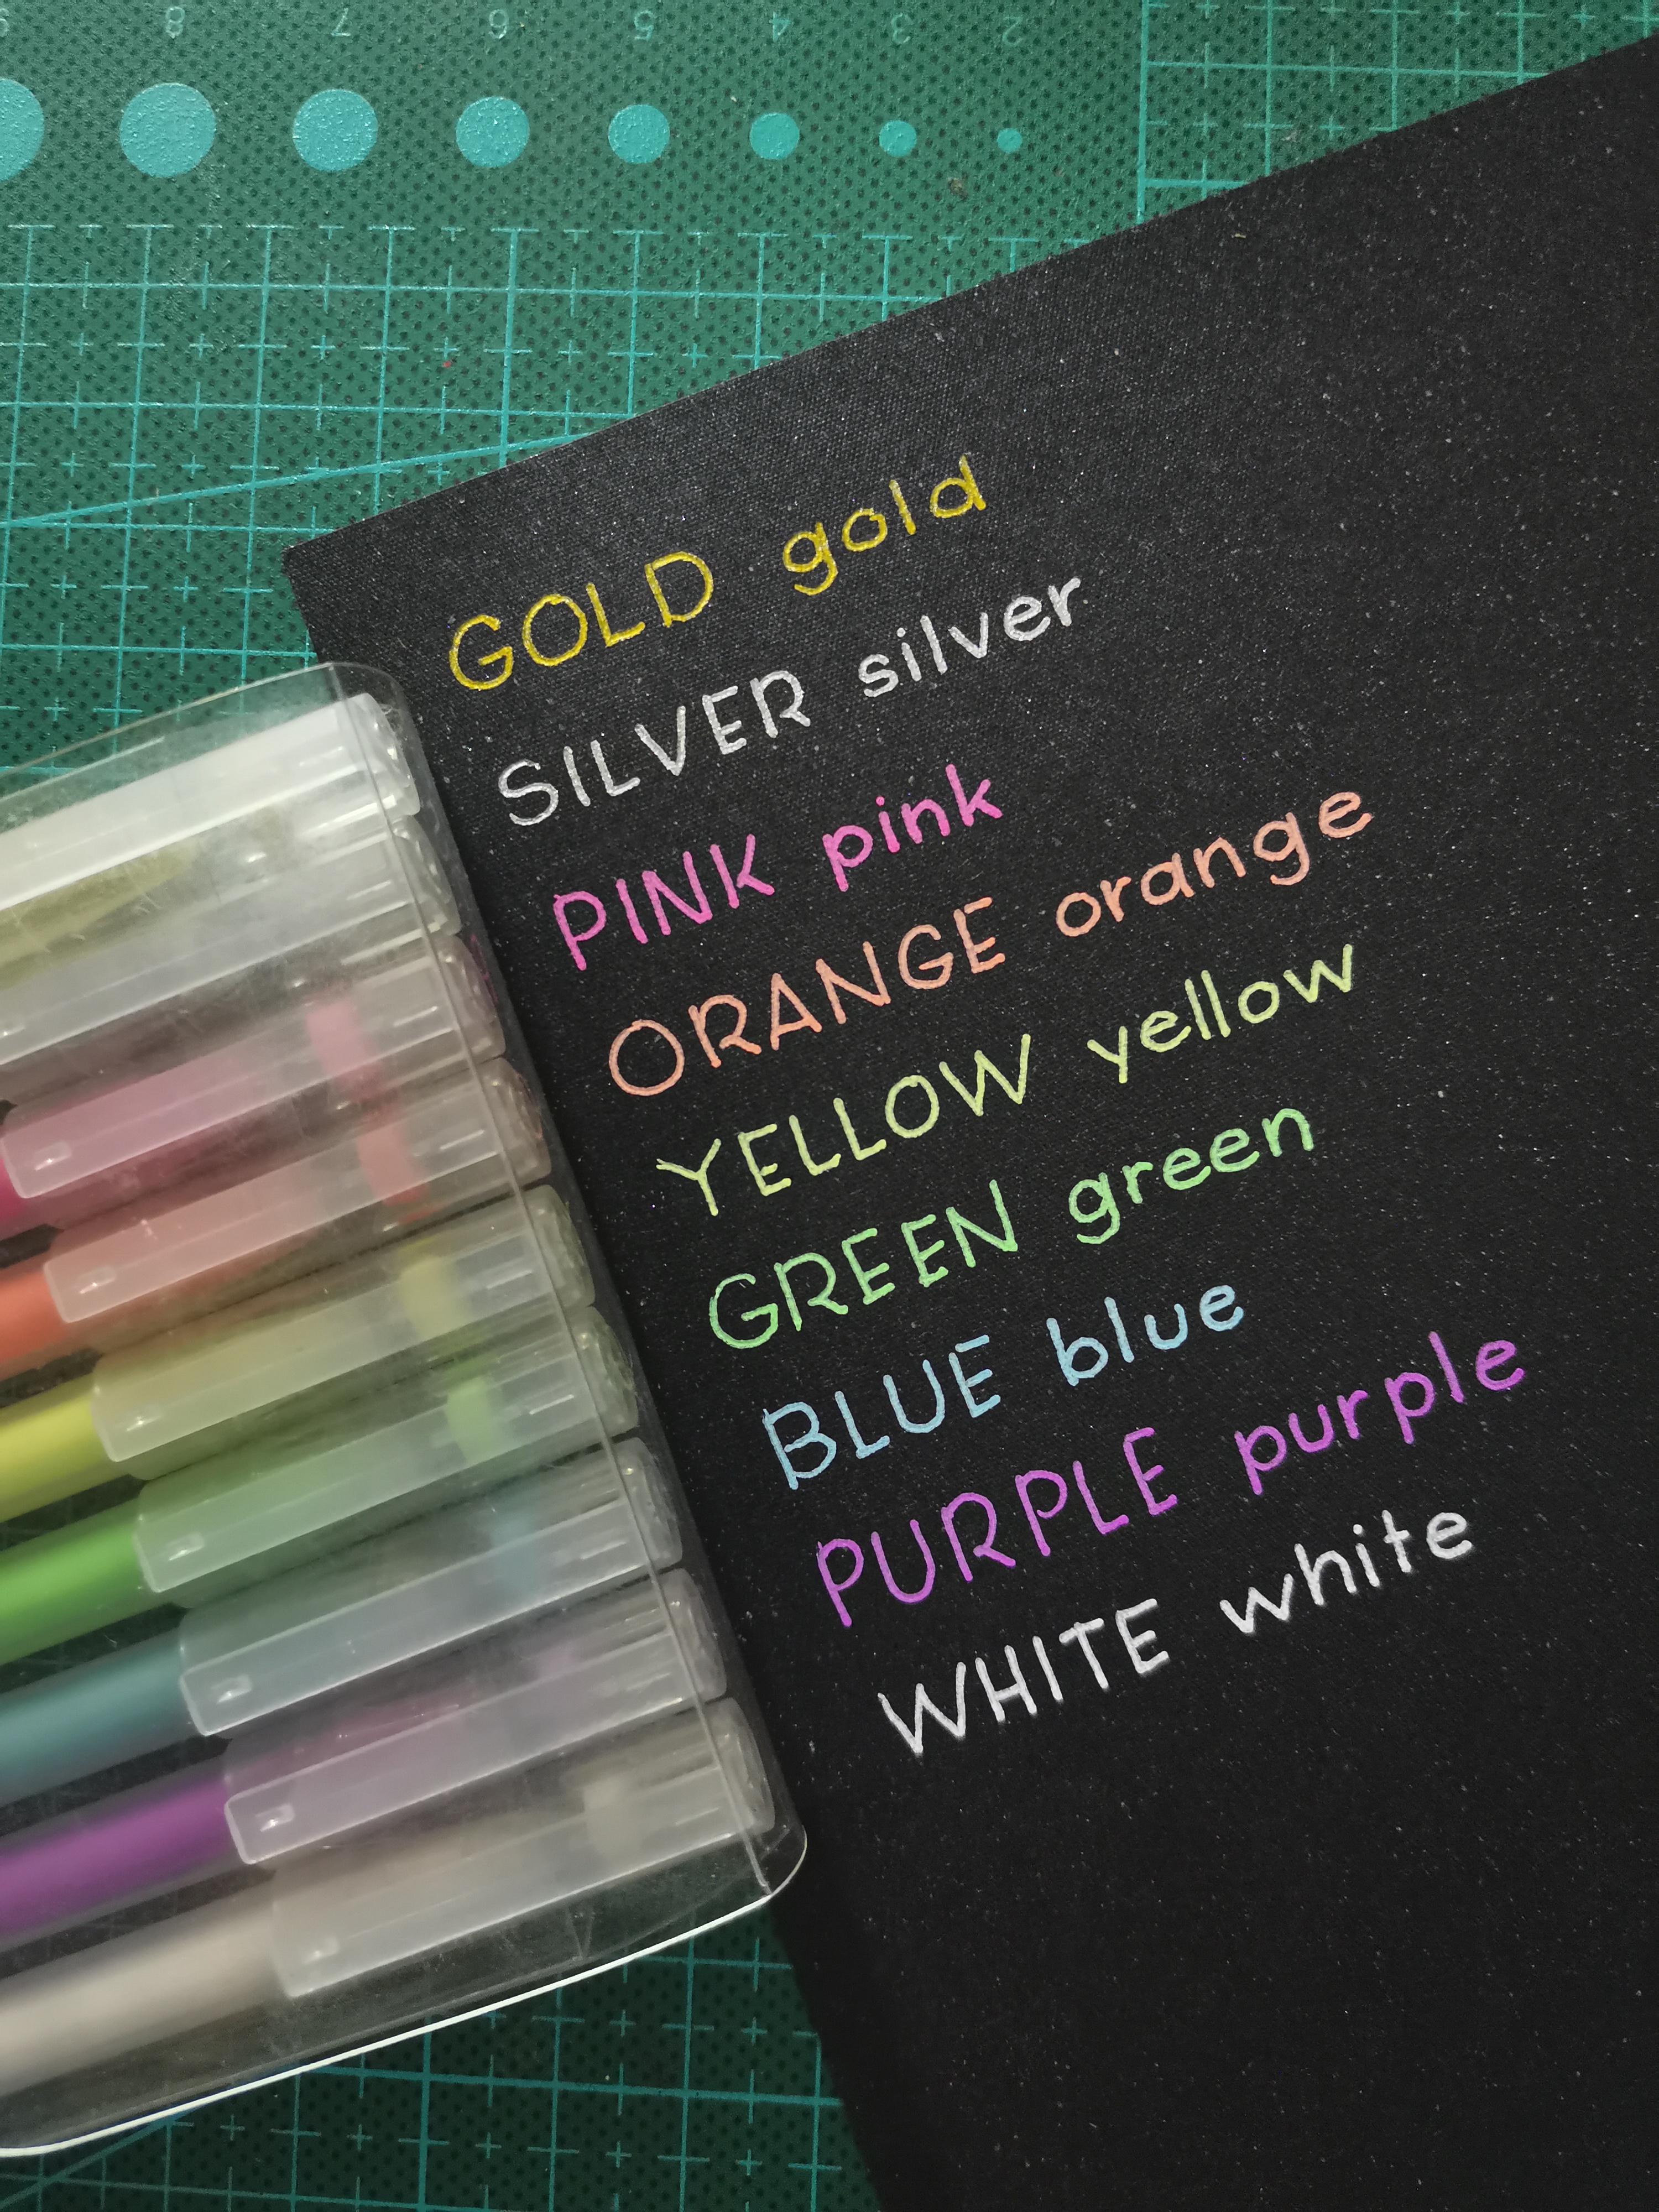 9 8 7 6 5 4 3 2
GOLD gold
SILVER silver
PINK pink
ORANGE orange
YELLOW yellow
GREEN green
BLUE blue
PURPLE purple
WHITE white